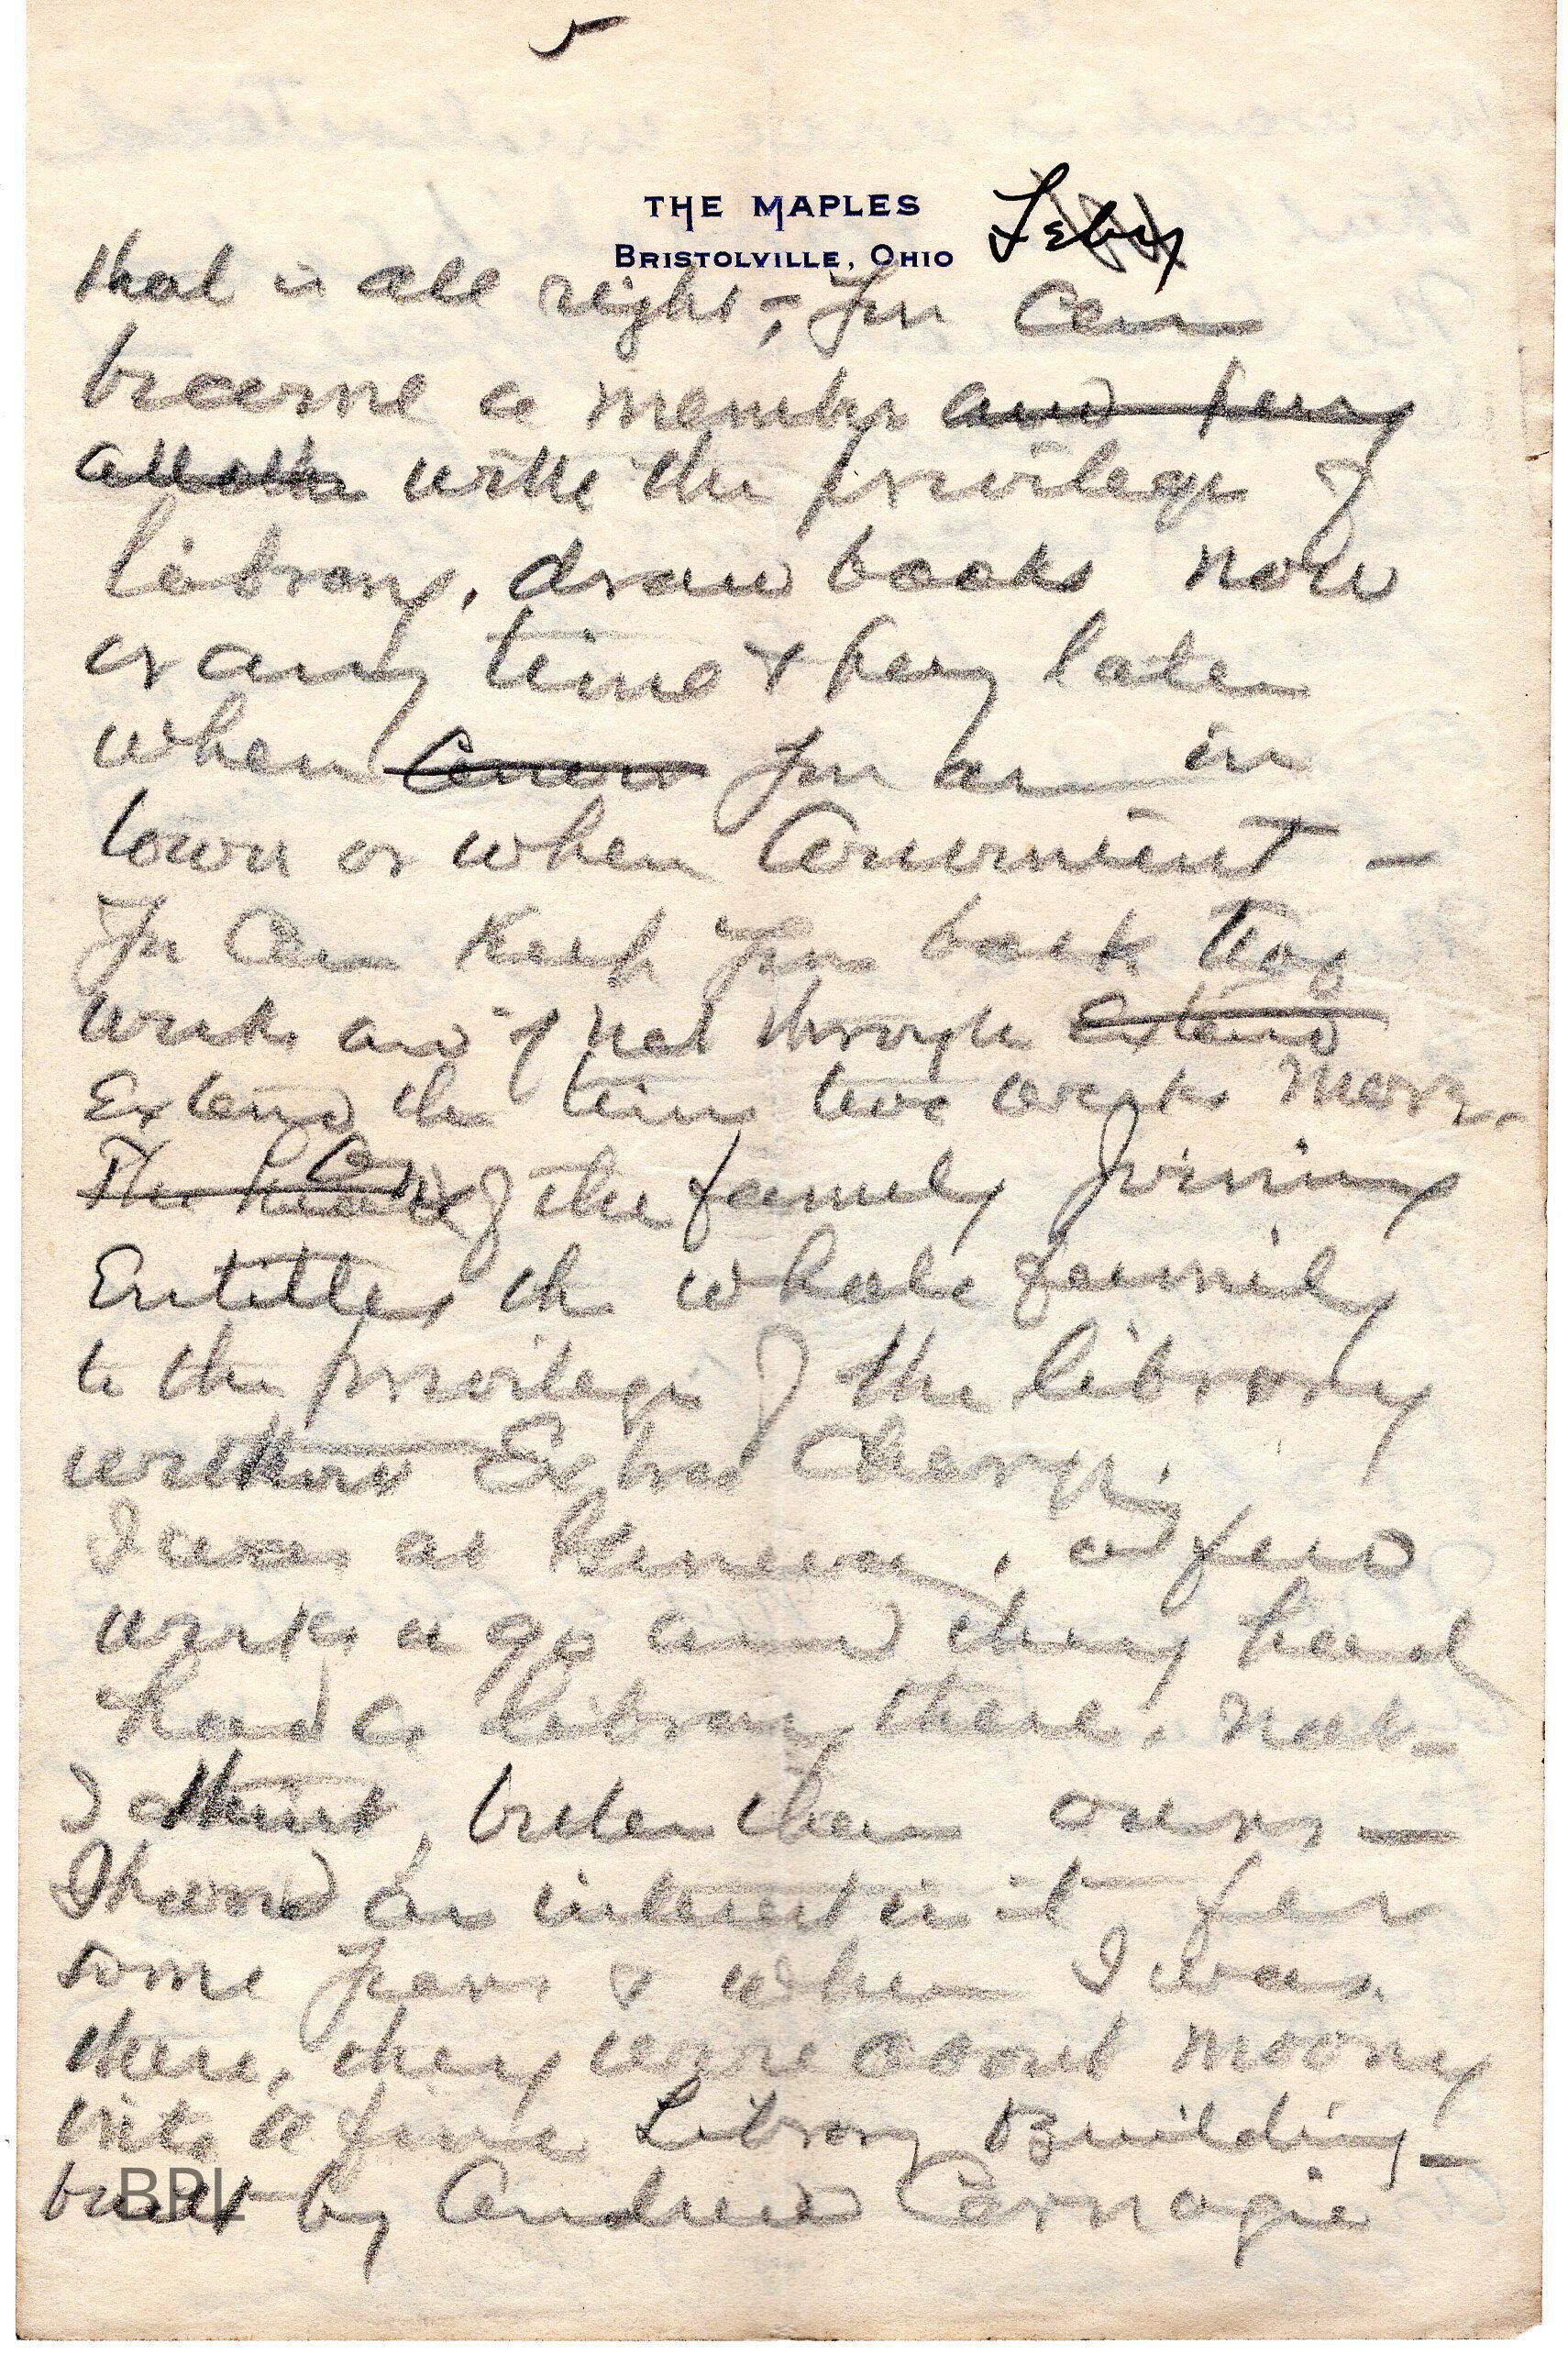 5
THE MAPLES
BRISTOLVILLE, OHIO
that is all right; You can
become a member and pay
all other with the privilege of
library, draw books now
or any time & pay later
when conven you are in
town or when convenient —
You can keep your book two
weeks and if not through extend
Extend the time two weeks more.
The head One of the family joining
Entitles the whole family
to the privilege of the library
without Extra Charge.
I was at Geneva, a few
weeks ago and they had
had a library there, not—
I think, better than ours —
I have an interest in it for
some years & when I was
there, they were about moving
into a fine Library Building —
built by Andrew Carnagie
BPL